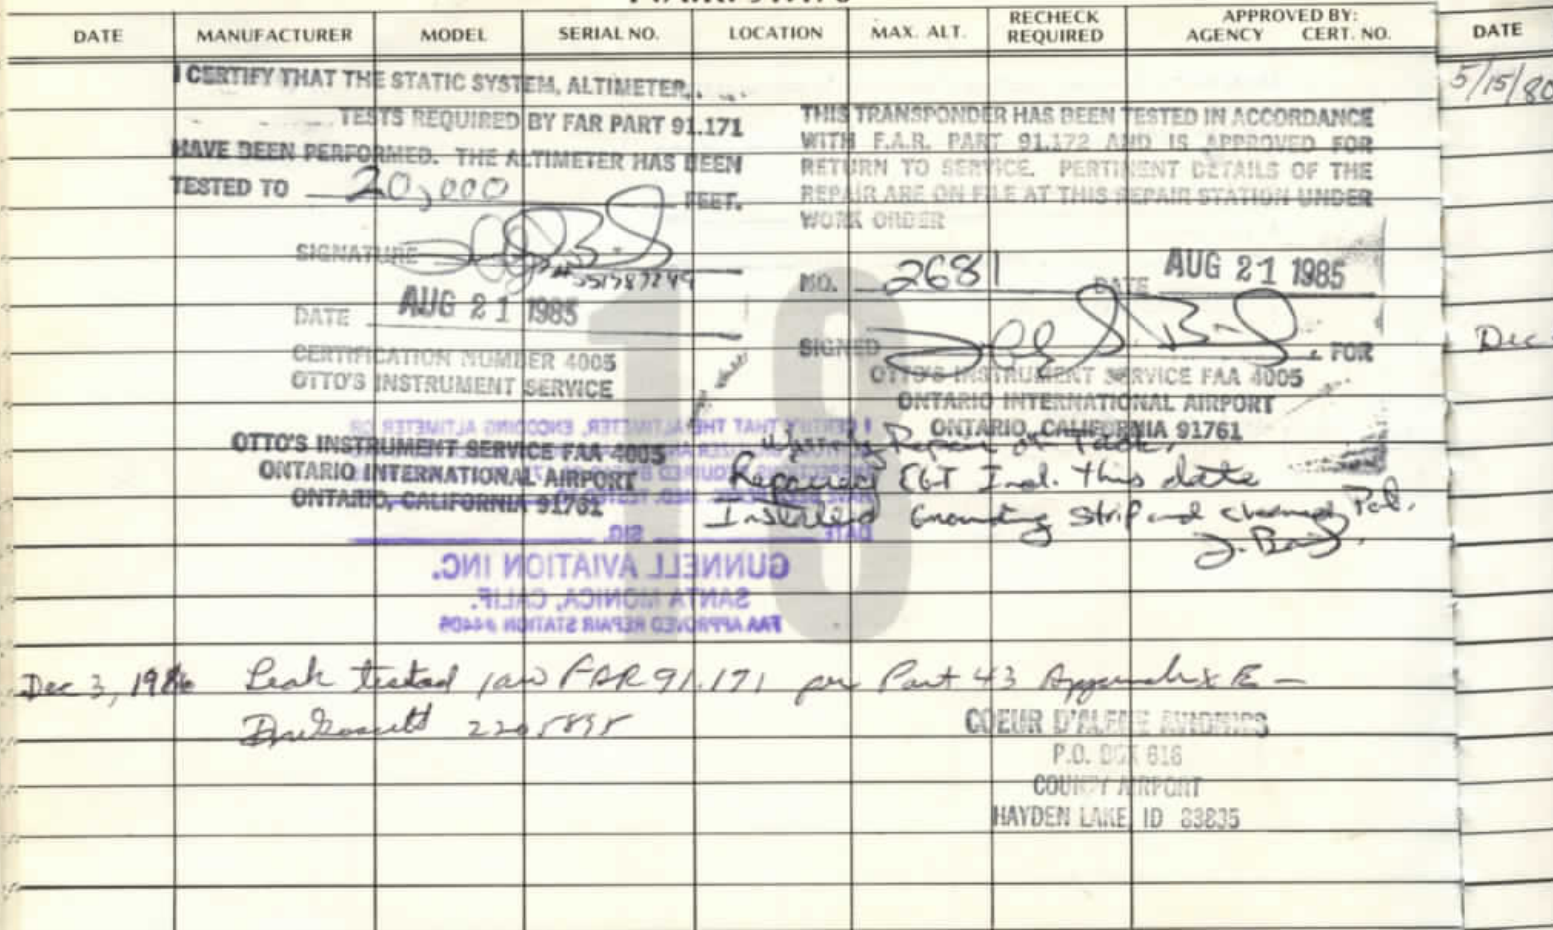 DATE MANUFACTURER MODEL SERIAL NO. LOCATION MAX. ALT. RECHECK REQUIRED APPROVED BY: AGENCY CERT. NO. DATE
5/15/80
I CERTIFY THAT THE STATIC SYSTEM, ALTIMETER,
TESTS REQUIRED BY FAR PART 91.171
HAVE BEEN PERFORMED. THE ALTIMETER HAS BEEN
TESTED TO 20,000 FEET.
SIGNATURE
DATE AUG 21 1985
CERTIFICATION NUMBER 4005
OTTO'S INSTRUMENT SERVICE
OTTO'S INSTRUMENT SERVICE FAA 4005
ONTARIO INTERNATIONAL AIRPORT
ONTARIO, CALIFORNIA 91761
THIS TRANSPONDER HAS BEEN TESTED IN ACCORDANCE
WITH F.A.R. PART 91.172 AND IS APPROVED FOR
RETURN TO SERVICE. PERTINENT DETAILS OF THE
REPAIR ARE ON FILE AT THIS REPAIR STATION UNDER
WORK ORDER
NO. 2681 DATE AUG 21 1985
SIGNED FOR
OTTO'S INSTRUMENT SERVICE FAA 4005
ONTARIO INTERNATIONAL AIRPORT
ONTARIO, CALIFORNIA 91761
Repair of Tach.
Repaired EGT Ind. this date
Installed Grounding Strip and
Dec
I CERTIFY THAT THE ALTIMETER, ENCODING ALTIMETER OR
DATE SIG.
GUNNELL AVIATION INC.
SANTA MONICA, CALIF.
FAA APPROVED REPAIR STATION #4405
Dec 3, 1986 Leak tested iaw FAR 91.171 per Part 43 Appendix E -
2205895
COEUR D'ALENE AVIONICS
P.O. BOX 616
COUNTY AIRPORT
HAYDEN LAKE, ID 83835